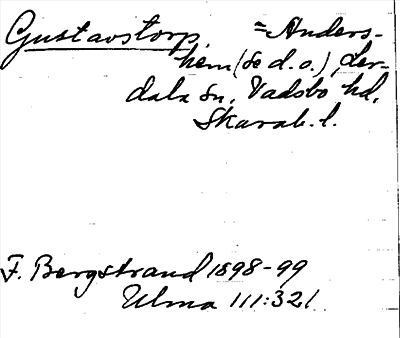 Gustavstorp, = Anders-
hem (se d.o.), Ler-
dala sn, Vadsbo hd,
Skarab. l.
F. Bergstrand 1898-99
Ulma 111:321